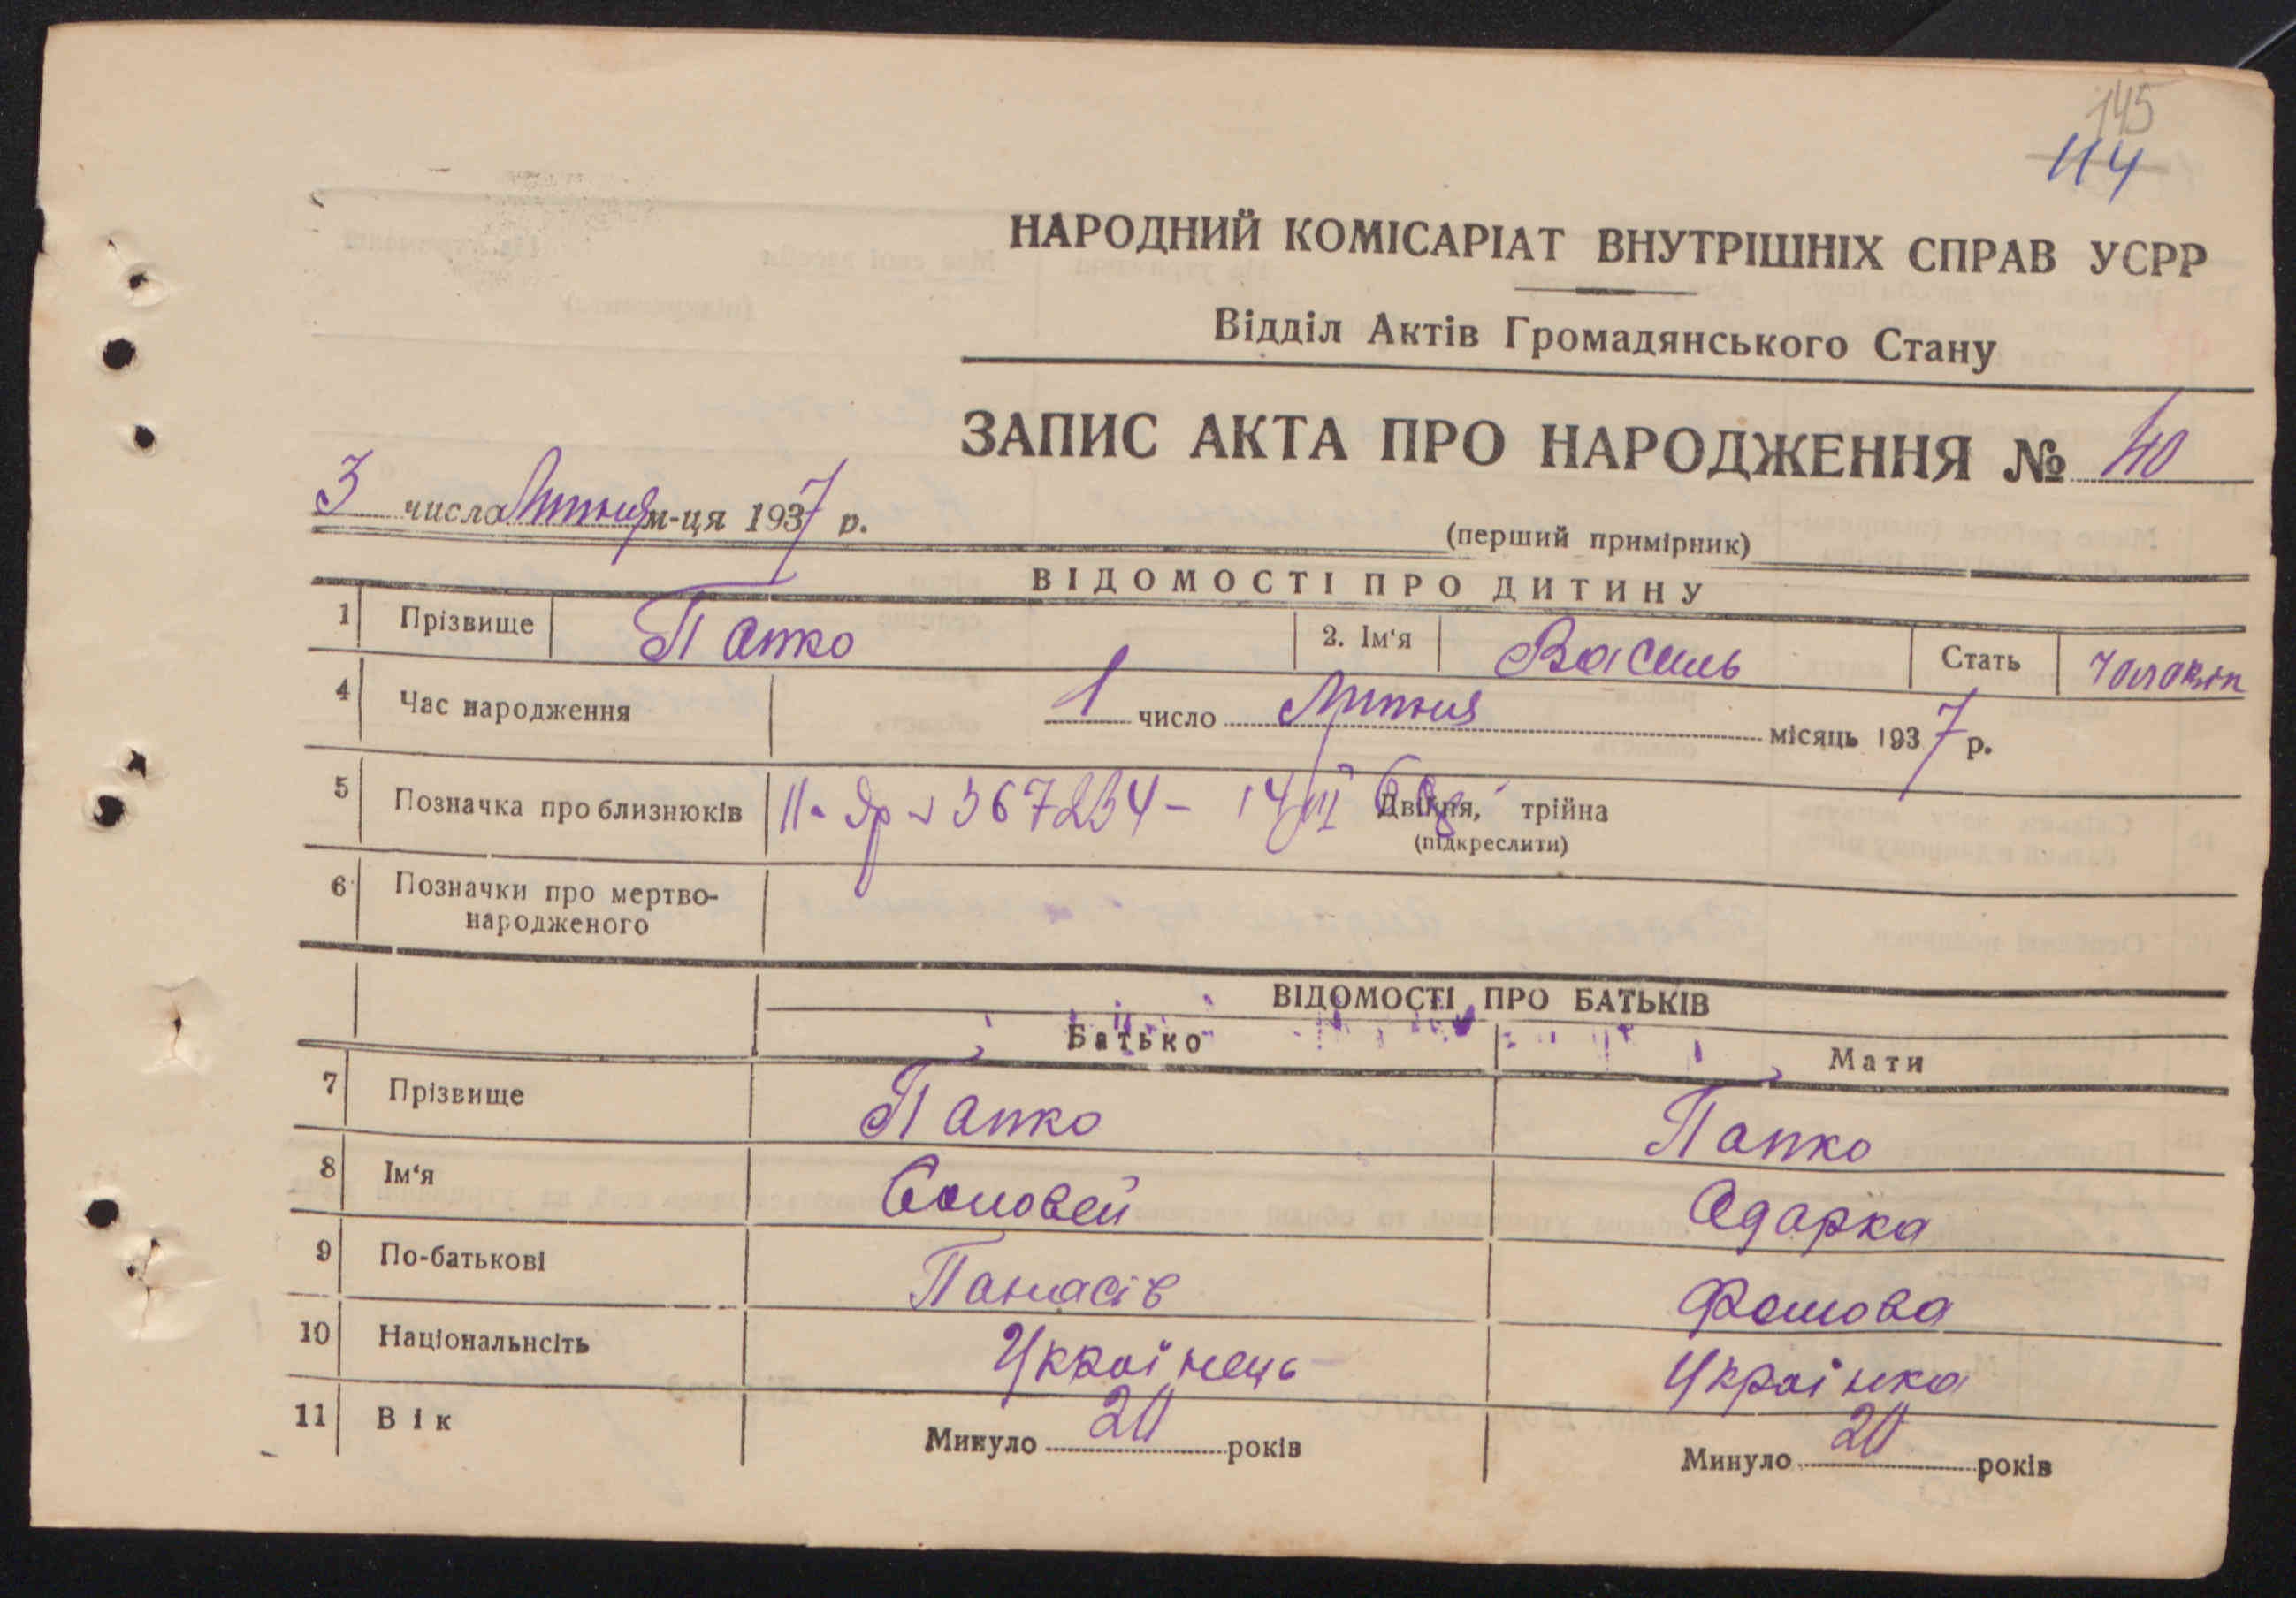 145
114
НАРОДНИЙ КОМІСАРІАТ ВНУТРІШНІХ СПРАВ УСРР
Відділ Актів Громадянського Стану
ЗАПИС АКТА ПРО НАРОДЖЕННЯ № 40
3 числа Липня м-ця 1937 р.
(перший примірник)
ВІДОМОСТІ ПРО ДИТИНУ
1 Прізвище Папко 2. Ім'я Василь Стать
4 Час народження 1 число Липня місяць 1937 р.
5 Позначка про близнюків 367234 - 14/III Двійня, трійна
(підкреслити)
6 Позначки про мертво-
народженого
ВІДОМОСТІ ПРО БАТЬКІВ
Батько Мати
7 Прізвище Папко Папко
8 Ім'я Соловей Одарка
9 По-батькові Панасів Фомова
10 Національнсіть Українець Українка
11 Вік Минуло 20 років Минуло 20 років